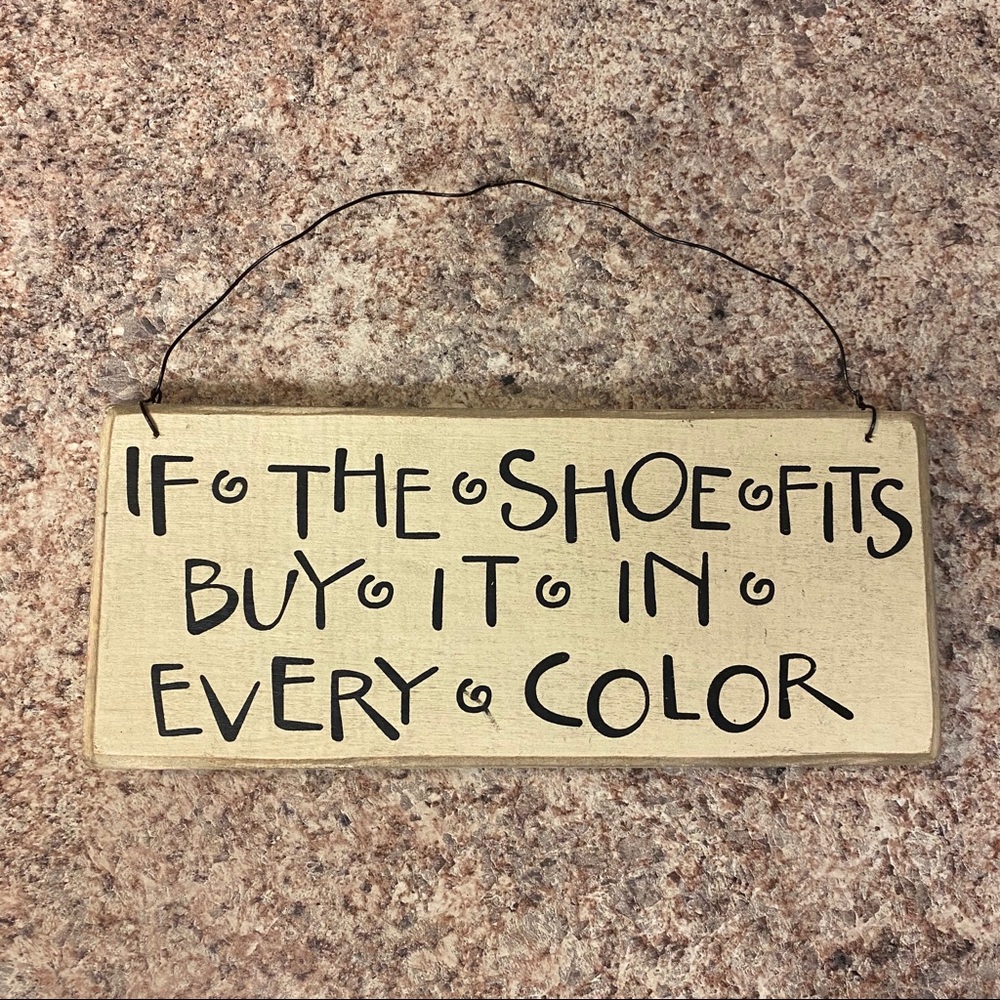 IF THE SHOE FITS
BUY IT IN
EVERY COLOR